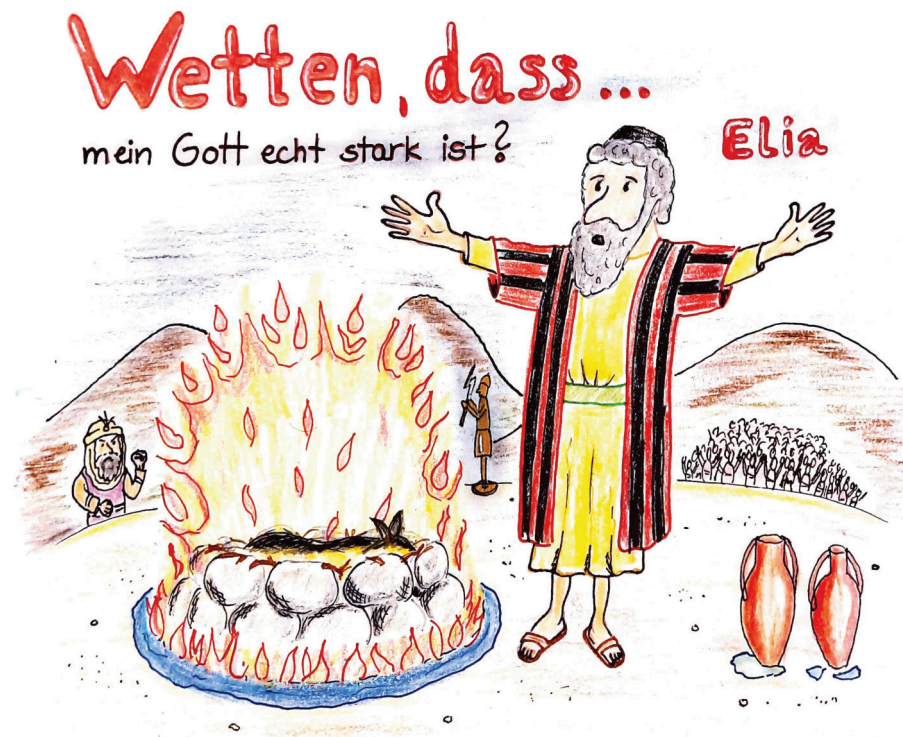 Wetten, dass...
mein Gott echt stark ist?
Elia